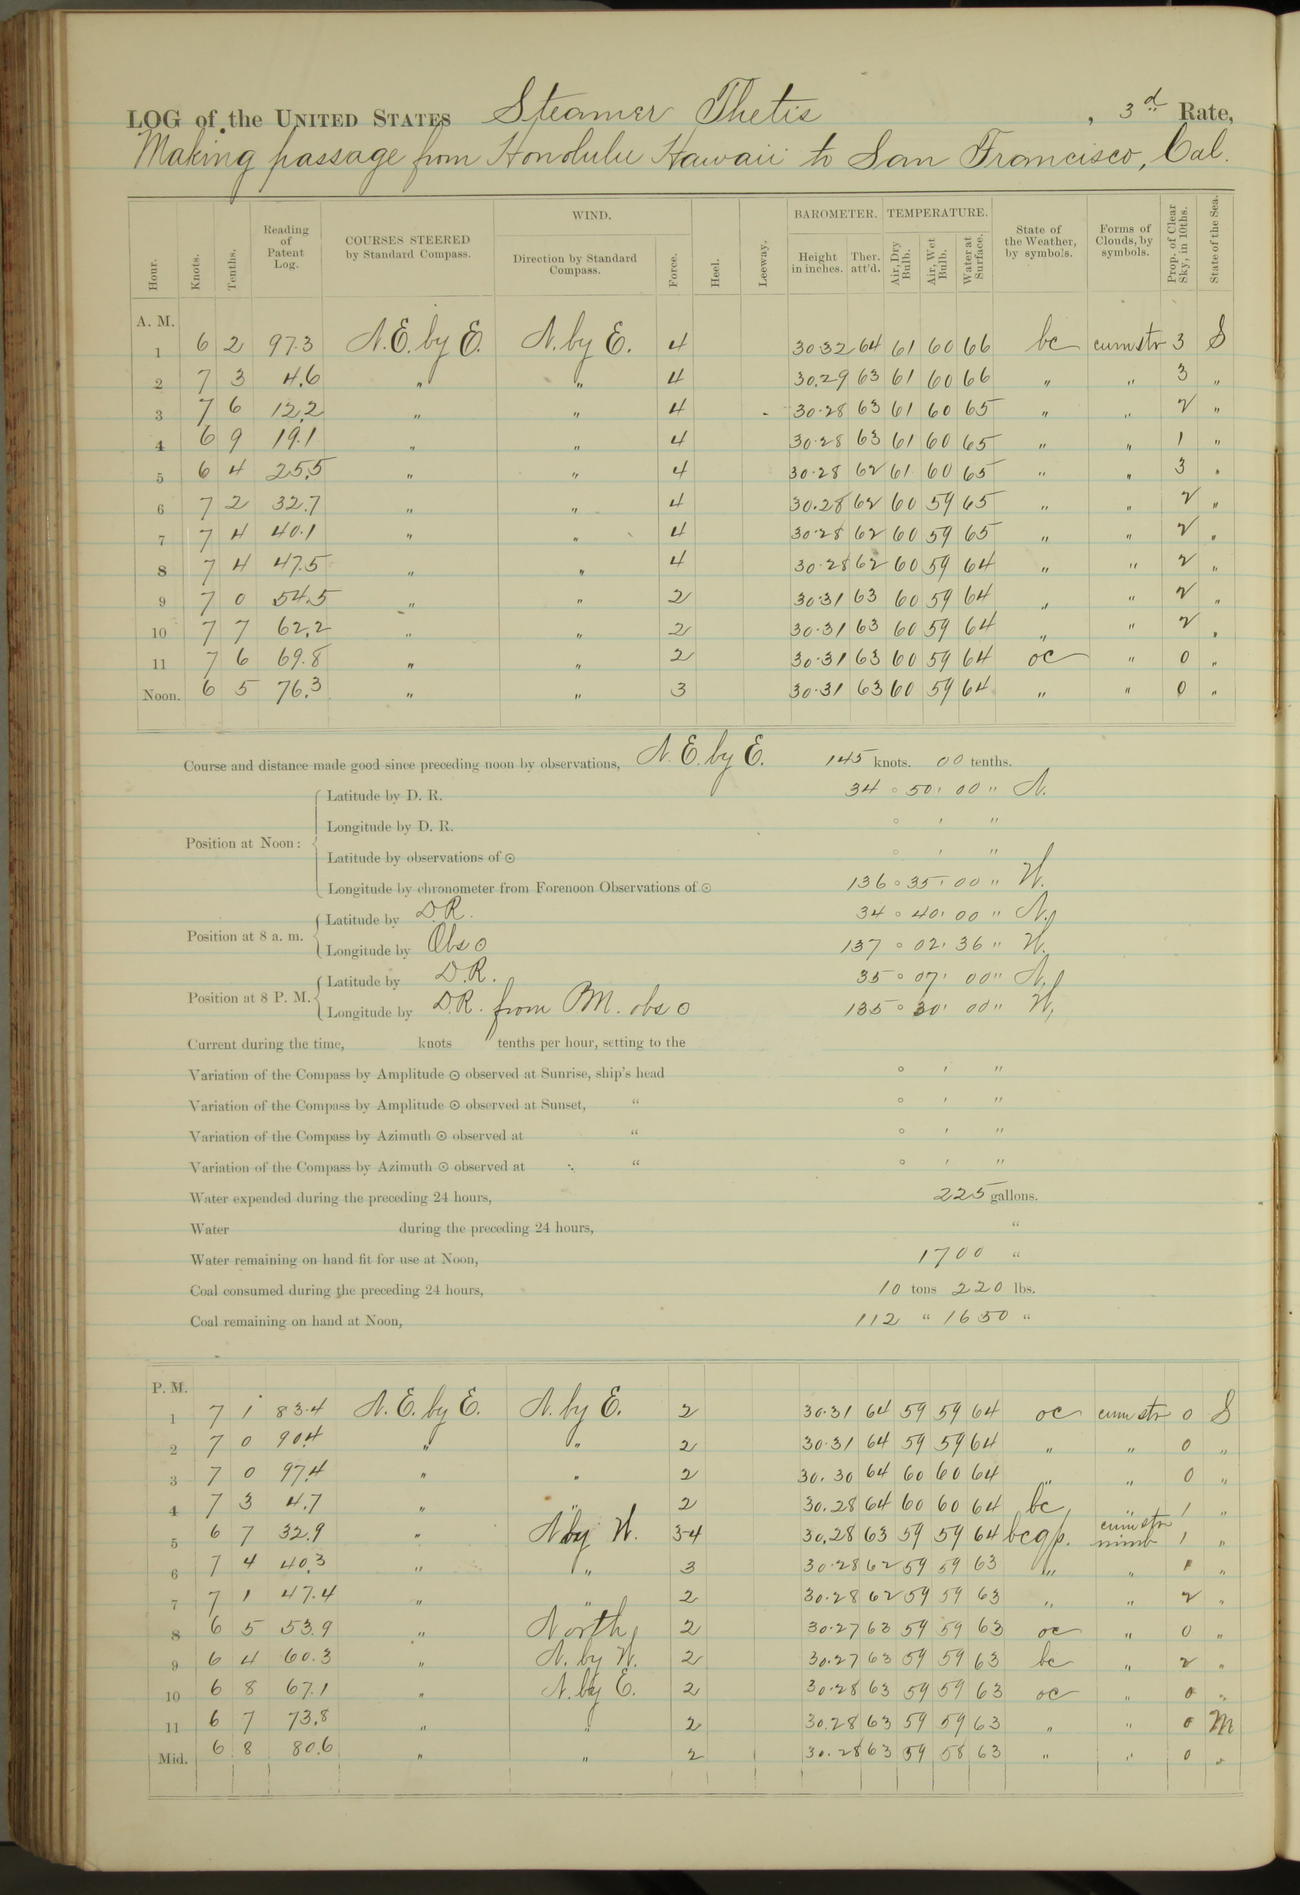 LOG of the UNITED STATES Steamer Thetis , 3d Rate,
Making passage from Honolulu Hawaii to San Francisco, Cal.
Hour. Knots. Tenths. Reading of Patent Log. COURSES STEERED by Standard Compass. WIND. Direction by Standard Compass. Force. Heel. Leeway. BAROMETER. Height in inches. Ther. att'd. TEMPERATURE. Air, Dry Bulb. Air, Wet Bulb. Water at Surface. State of the Weather, by symbols. Forms of Clouds, by symbols. Prop. of Clear Sky, in 10ths. State of the Sea.
A. M.
1 6 2 97.3 N.E. by E. N. by E. 4 30.32 64 61 60 66 bc cum str 3 S
2 7 3 4.6 " " 4 30.29 63 61 60 66 " " 3 "
3 7 6 12.2 " " 4 30.28 63 61 60 65 " " 2 "
4 6 9 19.1 " " 4 30.28 63 61 60 65 " " 1 "
5 6 4 25.5 " " 4 30.28 62 61 60 65 " " 3 "
6 7 2 32.7 " " 4 30.28 62 60 59 65 " " 2 "
7 7 4 40.1 " " 4 30.28 62 60 59 65 " " 2 "
8 7 4 47.5 " " 4 30.28 62 60 59 64 " " 2 "
9 7 0 54.5 " " 2 30.31 63 60 59 64 " " 2 "
10 7 7 62.2 " " 2 30.31 63 60 59 64 " " 2 "
11 7 6 69.8 " " 2 30.31 63 60 59 64 oc " 0 "
Noon. 6 5 76.3 " " 3 30.31 63 60 59 64 " " 0 "
Course and distance made good since preceding noon by observations, N.E. by E. 145 knots. 00 tenths.
Position at Noon:
Latitude by D. R. 34 ° 50 ' 00 " N.
Longitude by D. R. ° ' "
Latitude by observations of ☉ ° ' "
Longitude by chronometer from Forenoon Observations of ☉ 136 ° 35 ' 00 " W.
Position at 8 a. m.
Latitude by D.R. 34 ° 40 ' 00 " N.
Longitude by Obs ☉ 137 ° 02 ' 36 " W.
Position at 8 P. M.
Latitude by D.R. 35 ° 07 ' 00 " N.
Longitude by D.R. from P.M. obs ☉ 135 ° 30 ' 00 " W.
Current during the time, knots tenths per hour, setting to the
Variation of the Compass by Amplitude ☉ observed at Sunrise, ship's head ° ' "
Variation of the Compass by Amplitude ☉ observed at Sunset, " ° ' "
Variation of the Compass by Azimuth ☉ observed at " ° ' "
Variation of the Compass by Azimuth ☉ observed at " ° ' "
Water expended during the preceding 24 hours, 225 gallons.
Water during the preceding 24 hours, "
Water remaining on hand fit for use at Noon, 1700 "
Coal consumed during the preceding 24 hours, 10 tons 220 lbs.
Coal remaining on hand at Noon, 112 " 1650 "
P. M.
1 7 1 83.4 N.E. by E. N. by E. 2 30.31 64 59 59 64 oc cum str 0 S
2 7 0 90.4 " " 2 30.31 64 59 59 64 " " 0 "
3 7 0 97.4 " " 2 30.30 64 60 60 64 " " 0 "
4 7 3 4.7 " " 2 30.28 64 60 60 64 bc " 1 "
5 6 7 32.9 " N by W. 3-4 30.28 63 59 59 64 bcqp. cum str nimb 1 "
6 7 4 40.3 " " 3 30.28 62 59 59 63 " " 1 "
7 7 1 47.4 " " 2 30.28 62 59 59 63 " " 2 "
8 6 5 53.9 " North 2 30.27 63 59 59 63 oc " 0 "
9 6 4 60.3 " N. by W. 2 30.27 63 59 59 63 bc " 2 "
10 6 8 67.1 " N. by E. 2 30.28 63 59 59 63 oc " 0 "
11 6 7 73.8 " " 2 30.28 63 59 59 63 " " 0 M
Mid. 6 8 80.6 " " 2 30.28 63 59 58 63 " " 0 "